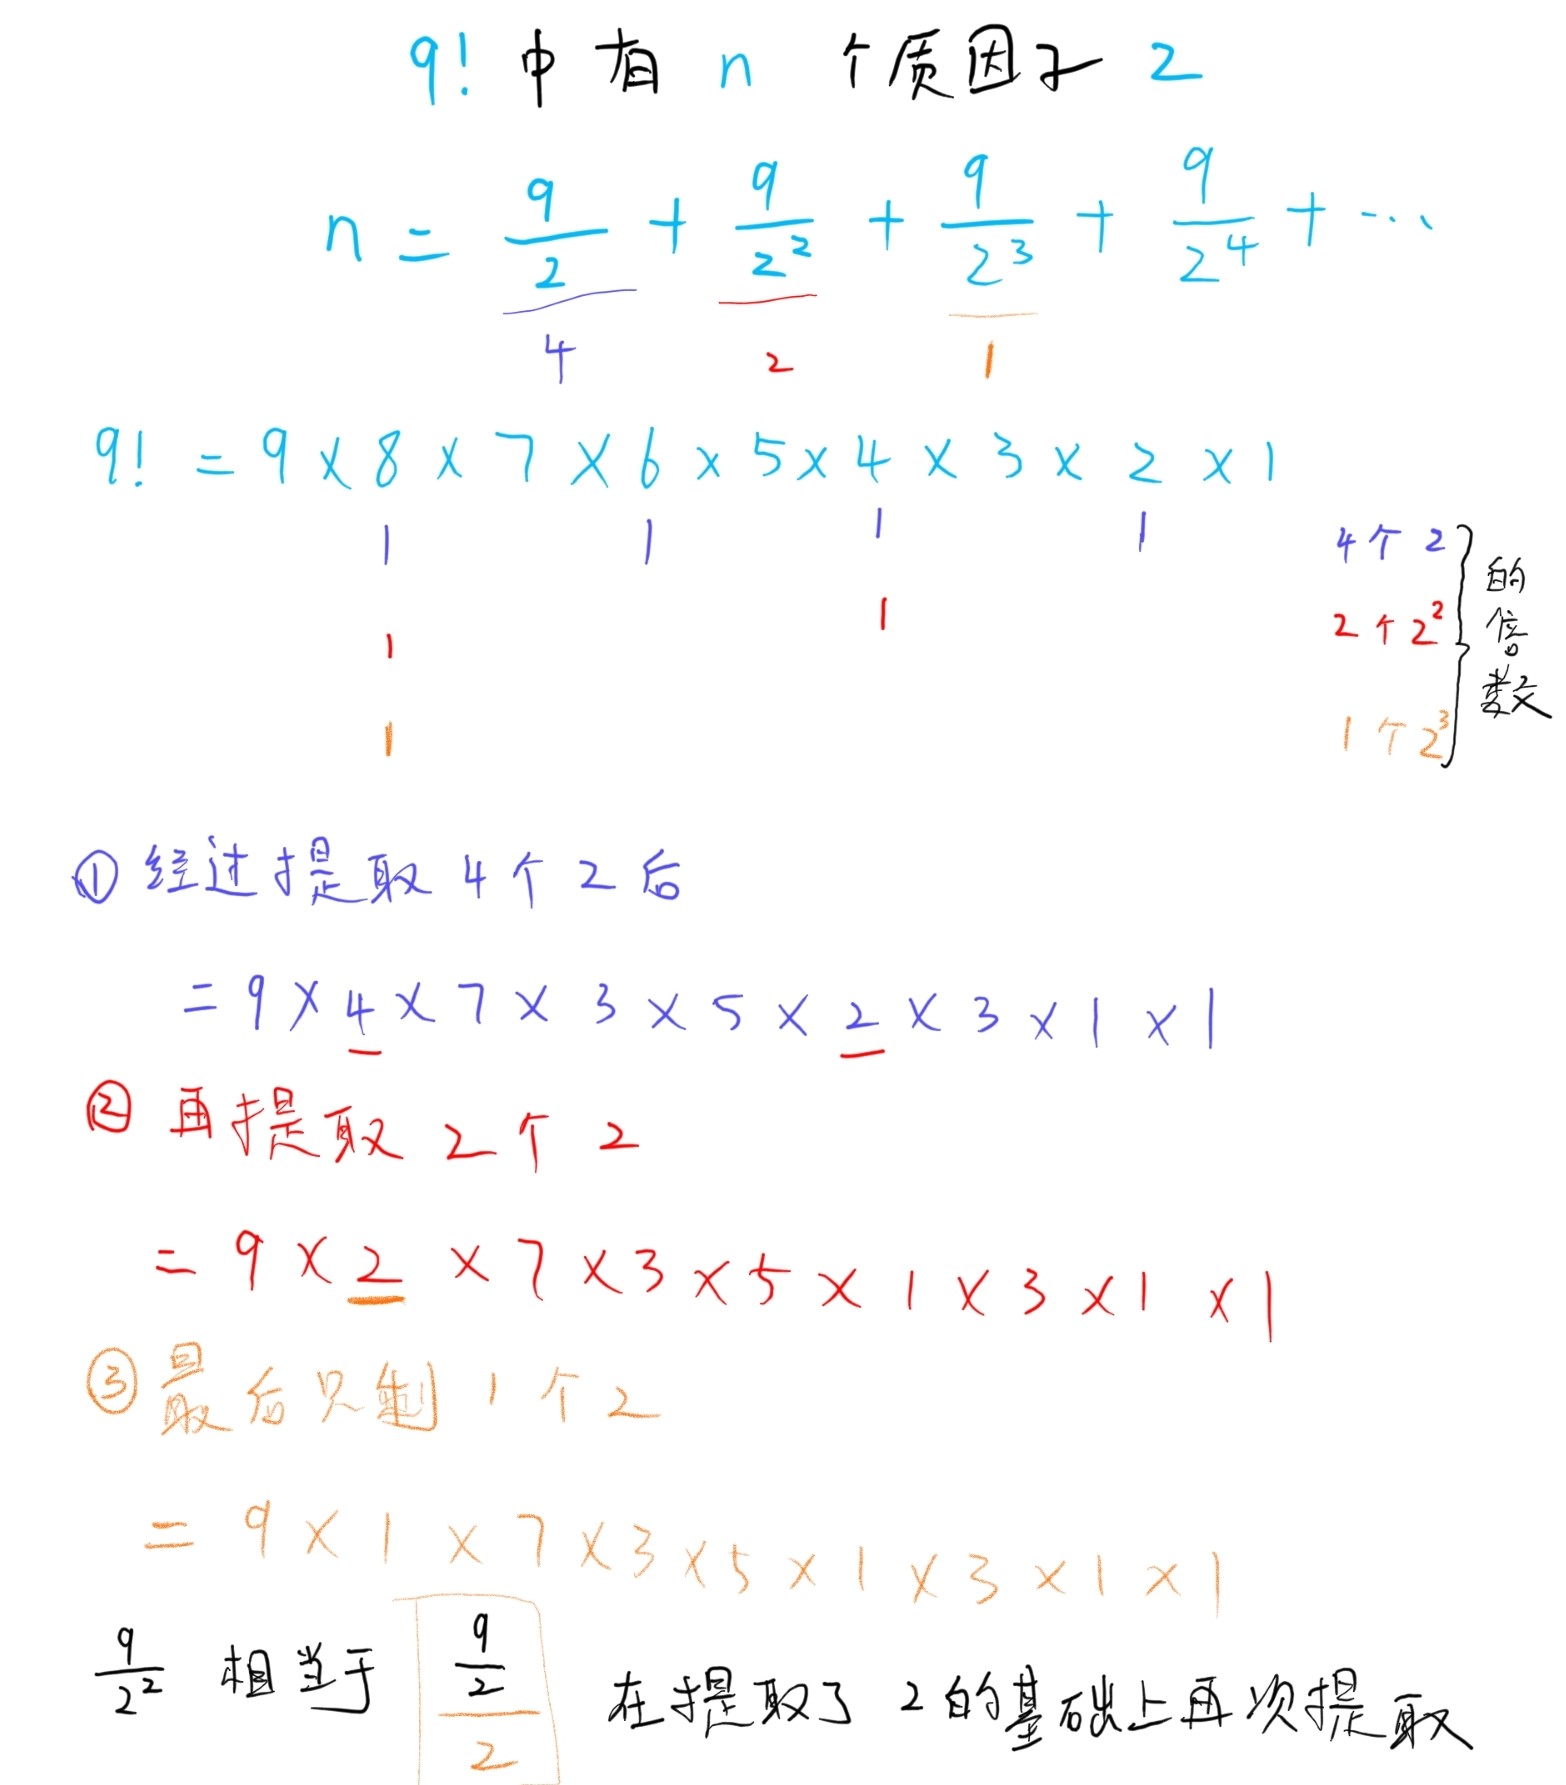 9! 中有 n 个质因子 2
n = 9/2 + 9/2² + 9/2³ + 9/2⁴ + ...
4 2 1
9! = 9 × 8 × 7 × 6 × 5 × 4 × 3 × 2 × 1
1 1 1 1 4个2
1 1 2个2²
1 1个2³
的倍数
① 经过提取4个2后
= 9 × 4 × 7 × 3 × 5 × 2 × 3 × 1 × 1
② 再提取2个2
= 9 × 2 × 7 × 3 × 5 × 1 × 3 × 1 × 1
③ 最后只剩1个2
= 9 × 1 × 7 × 3 × 5 × 1 × 3 × 1 × 1
9/2² 相当于 (9/2)/2 在提取了2的基础上再次提取